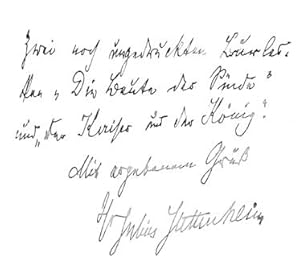 Zwei noch ungedruckten Burles-
ken „Die Beute der Sünde“
und „Der Kaiser und der König“.
Mit ergebenem Gruß
Ihr Julius Stettenheim